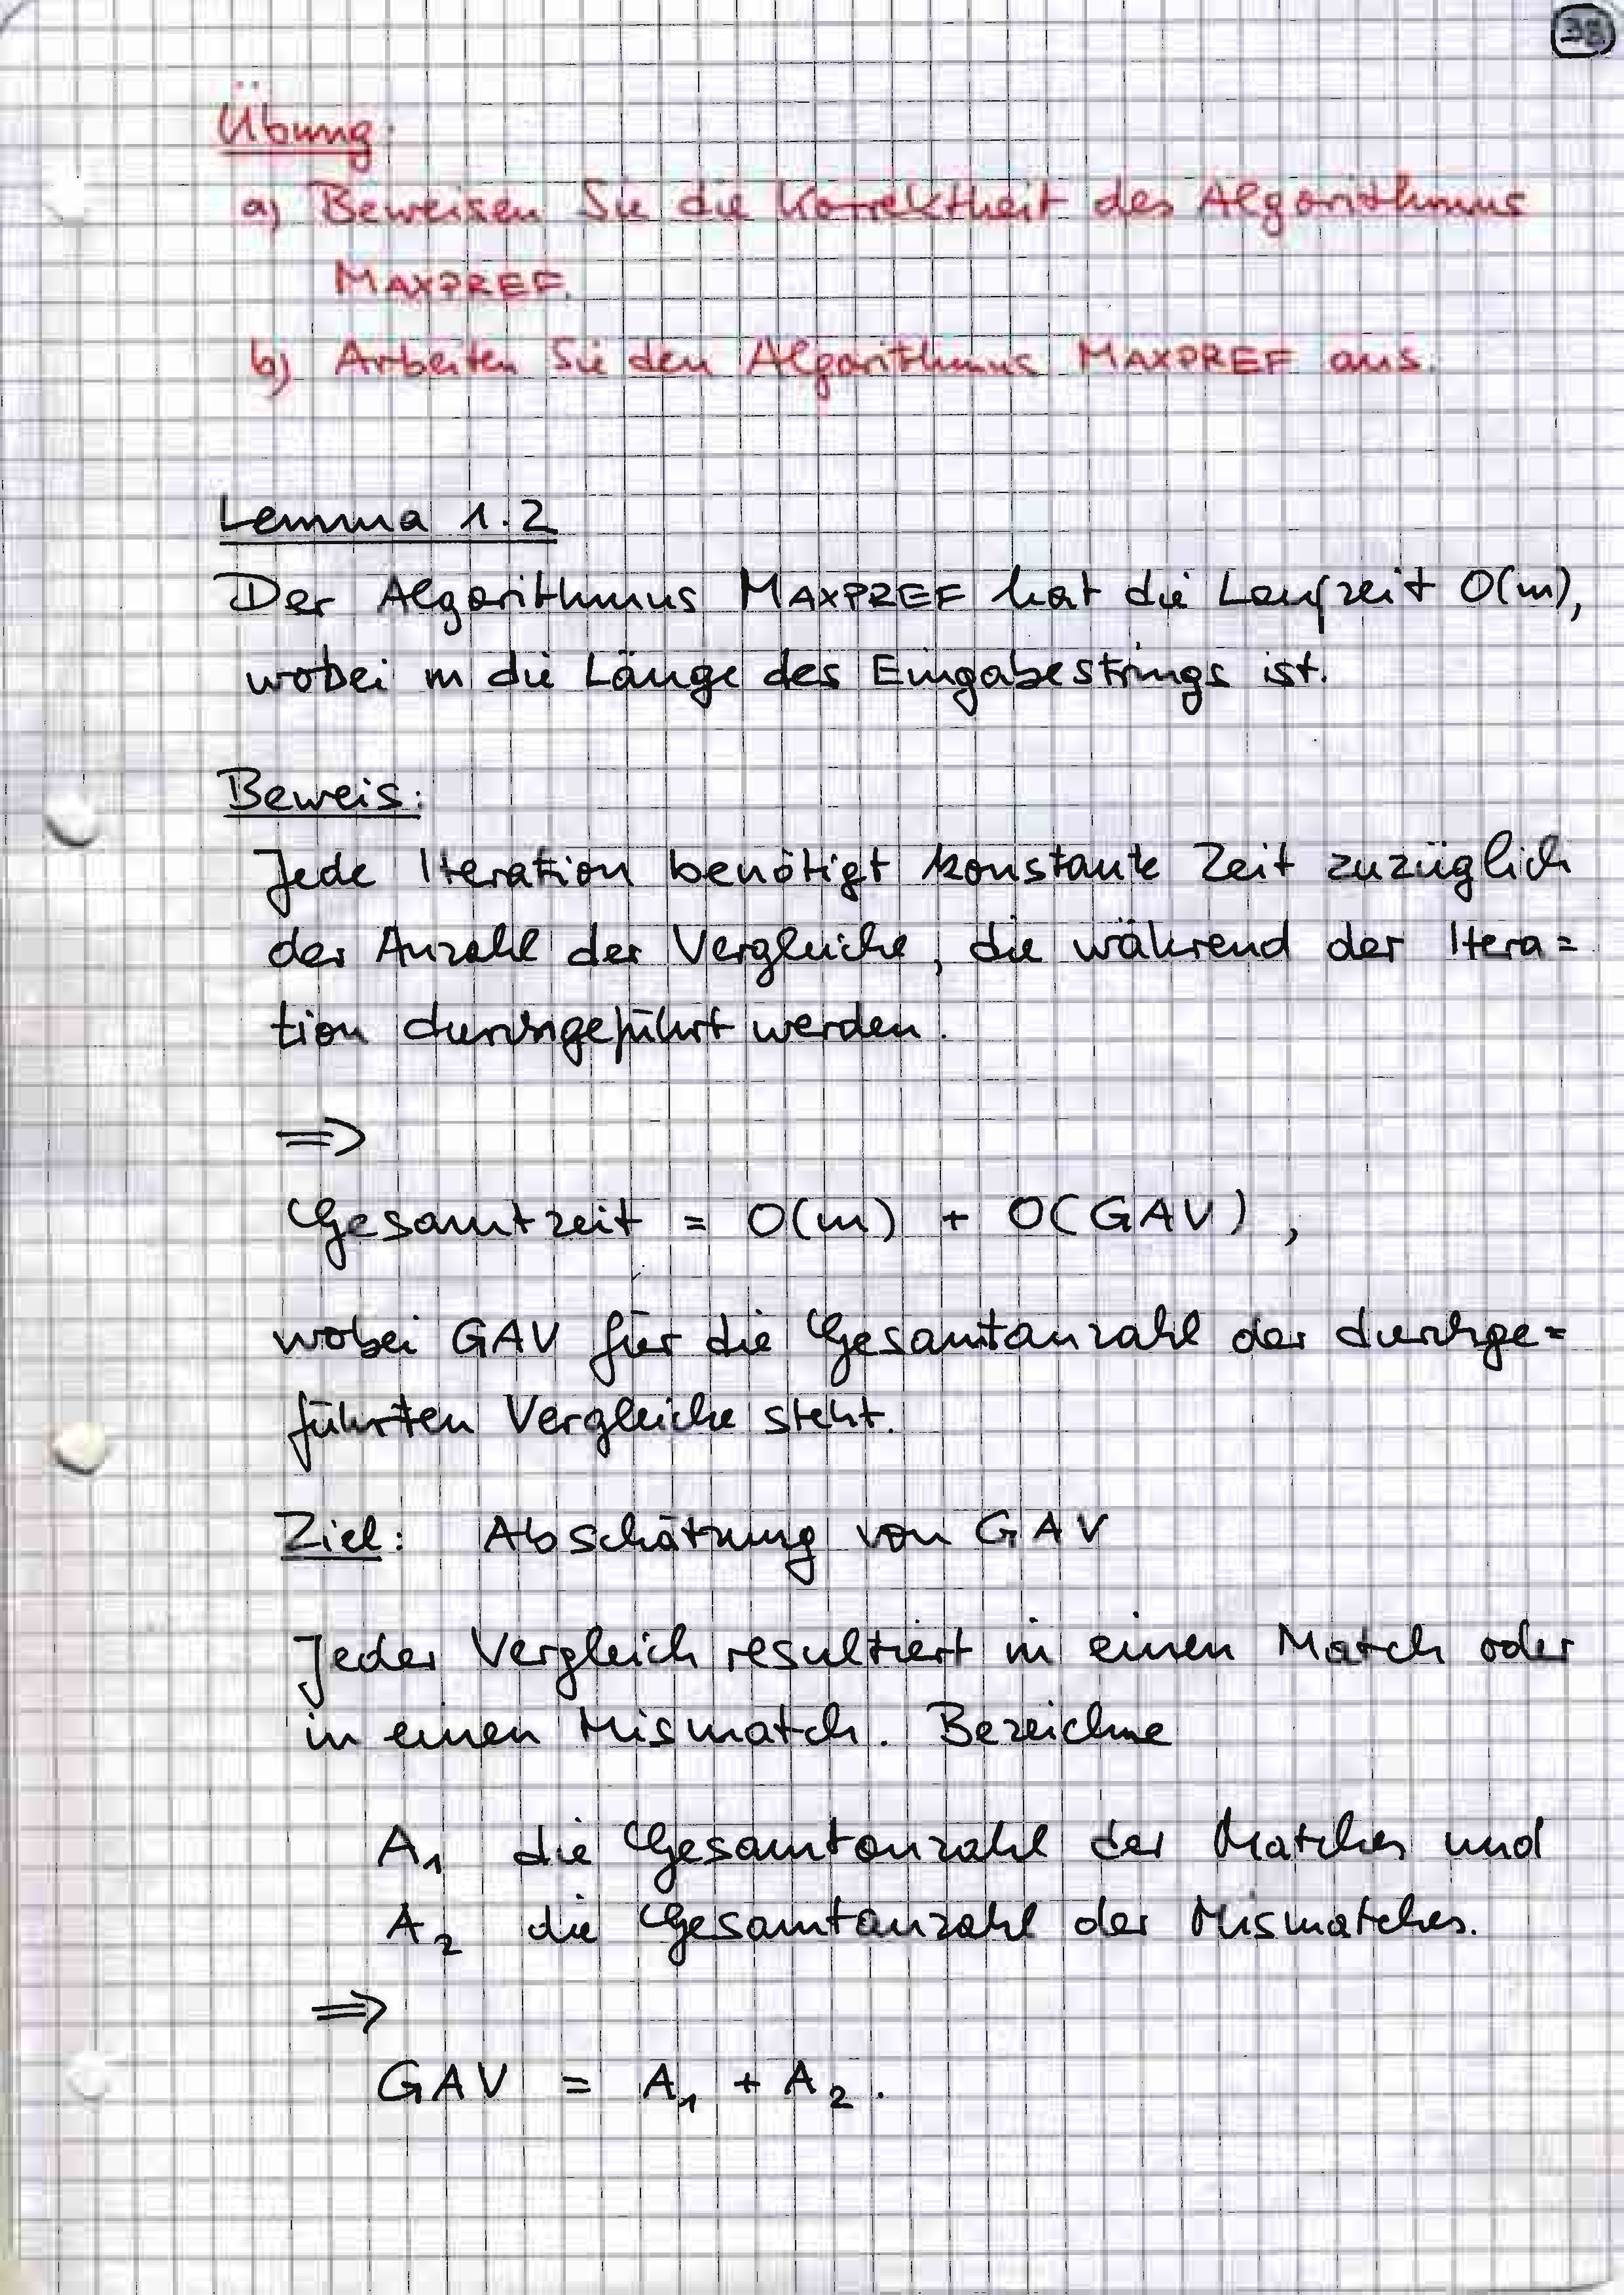 38
Übung:
a) Beweisen Sie die Korrektheit des Algorithmus
MAXPREF.
b) Arbeiten Sie den Algorithmus MAXPREF aus.
Lemma 1.2
Der Algorithmus MAXPREF hat die Laufzeit O(m),
wobei m die Länge des Eingabestrings ist.
Beweis:
Jede Iteration benötigt konstante Zeit zuzüglich
der Anzahl der Vergleiche, die während der Itera=
tion durchgeführt werden.
⇒
Gesamtzeit = O(m) + O(GAV),
wobei GAV für die Gesamtanzahl der durchge=
führten Vergleiche steht.
Ziel: Abschätzung von GAV
Jeder Vergleich resultiert in einen Match oder
in einen Mismatch. Bezeichne
A₁ die Gesamtanzahl der Matches und
A₂ die Gesamtanzahl der Mismatches.
⇒
GAV = A₁ + A₂.